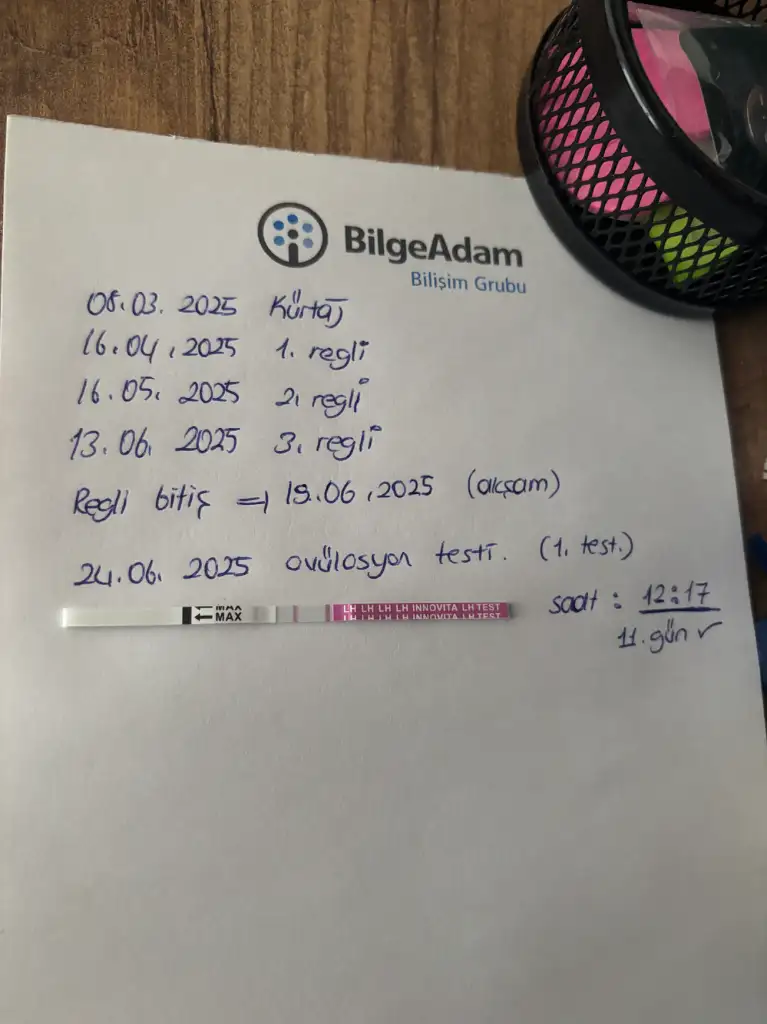 BilgeAdam
Bilişim Grubu
08.03.2025 Kürtaj
16.04.2025 1. regli
16.05.2025 2. regli
13.06.2025 3. regli
Regli bitiş => 19.06.2025 (akşam)
24.06.2025 ovülosyon testi. (1. test.)
MAX
MAX
LH LH LH LH INNOVITA LH TEST
LH LH LH LH INNOVITA LH TEST
saat : 12:17
11. gün ✓